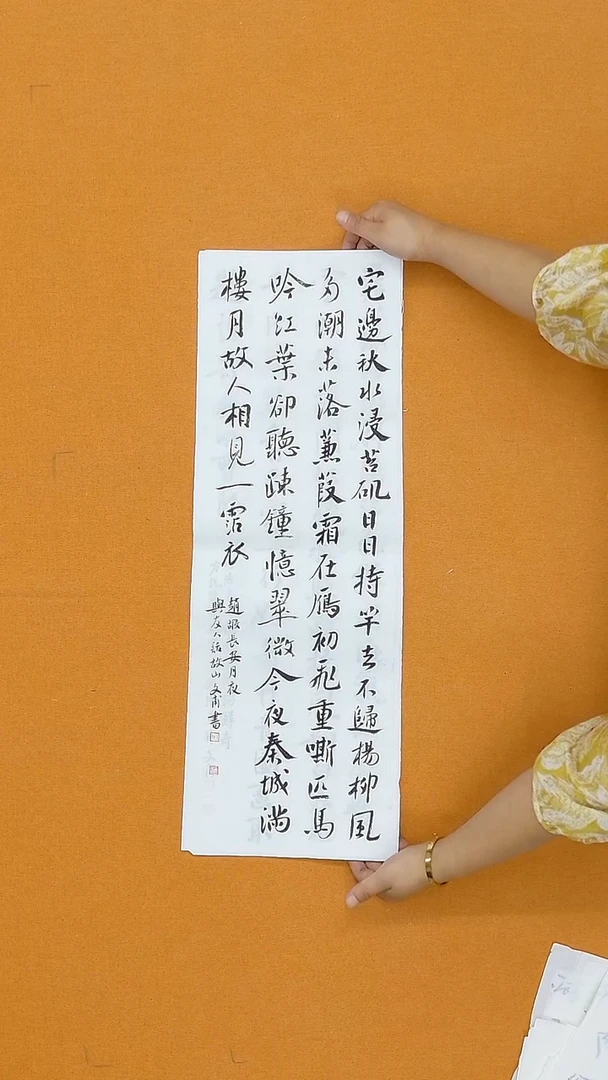 宅邊秋水浸苔矶日日持竿去不歸楊柳風
多潮未落蒹葭霜在鴈初飛重嘶匹馬
吟紅葉卻聽疎鐘憶翠微今夜秦城滿
樓月故人相見一霑衣
趙嘏長安月夜
與友人話故山文甫書